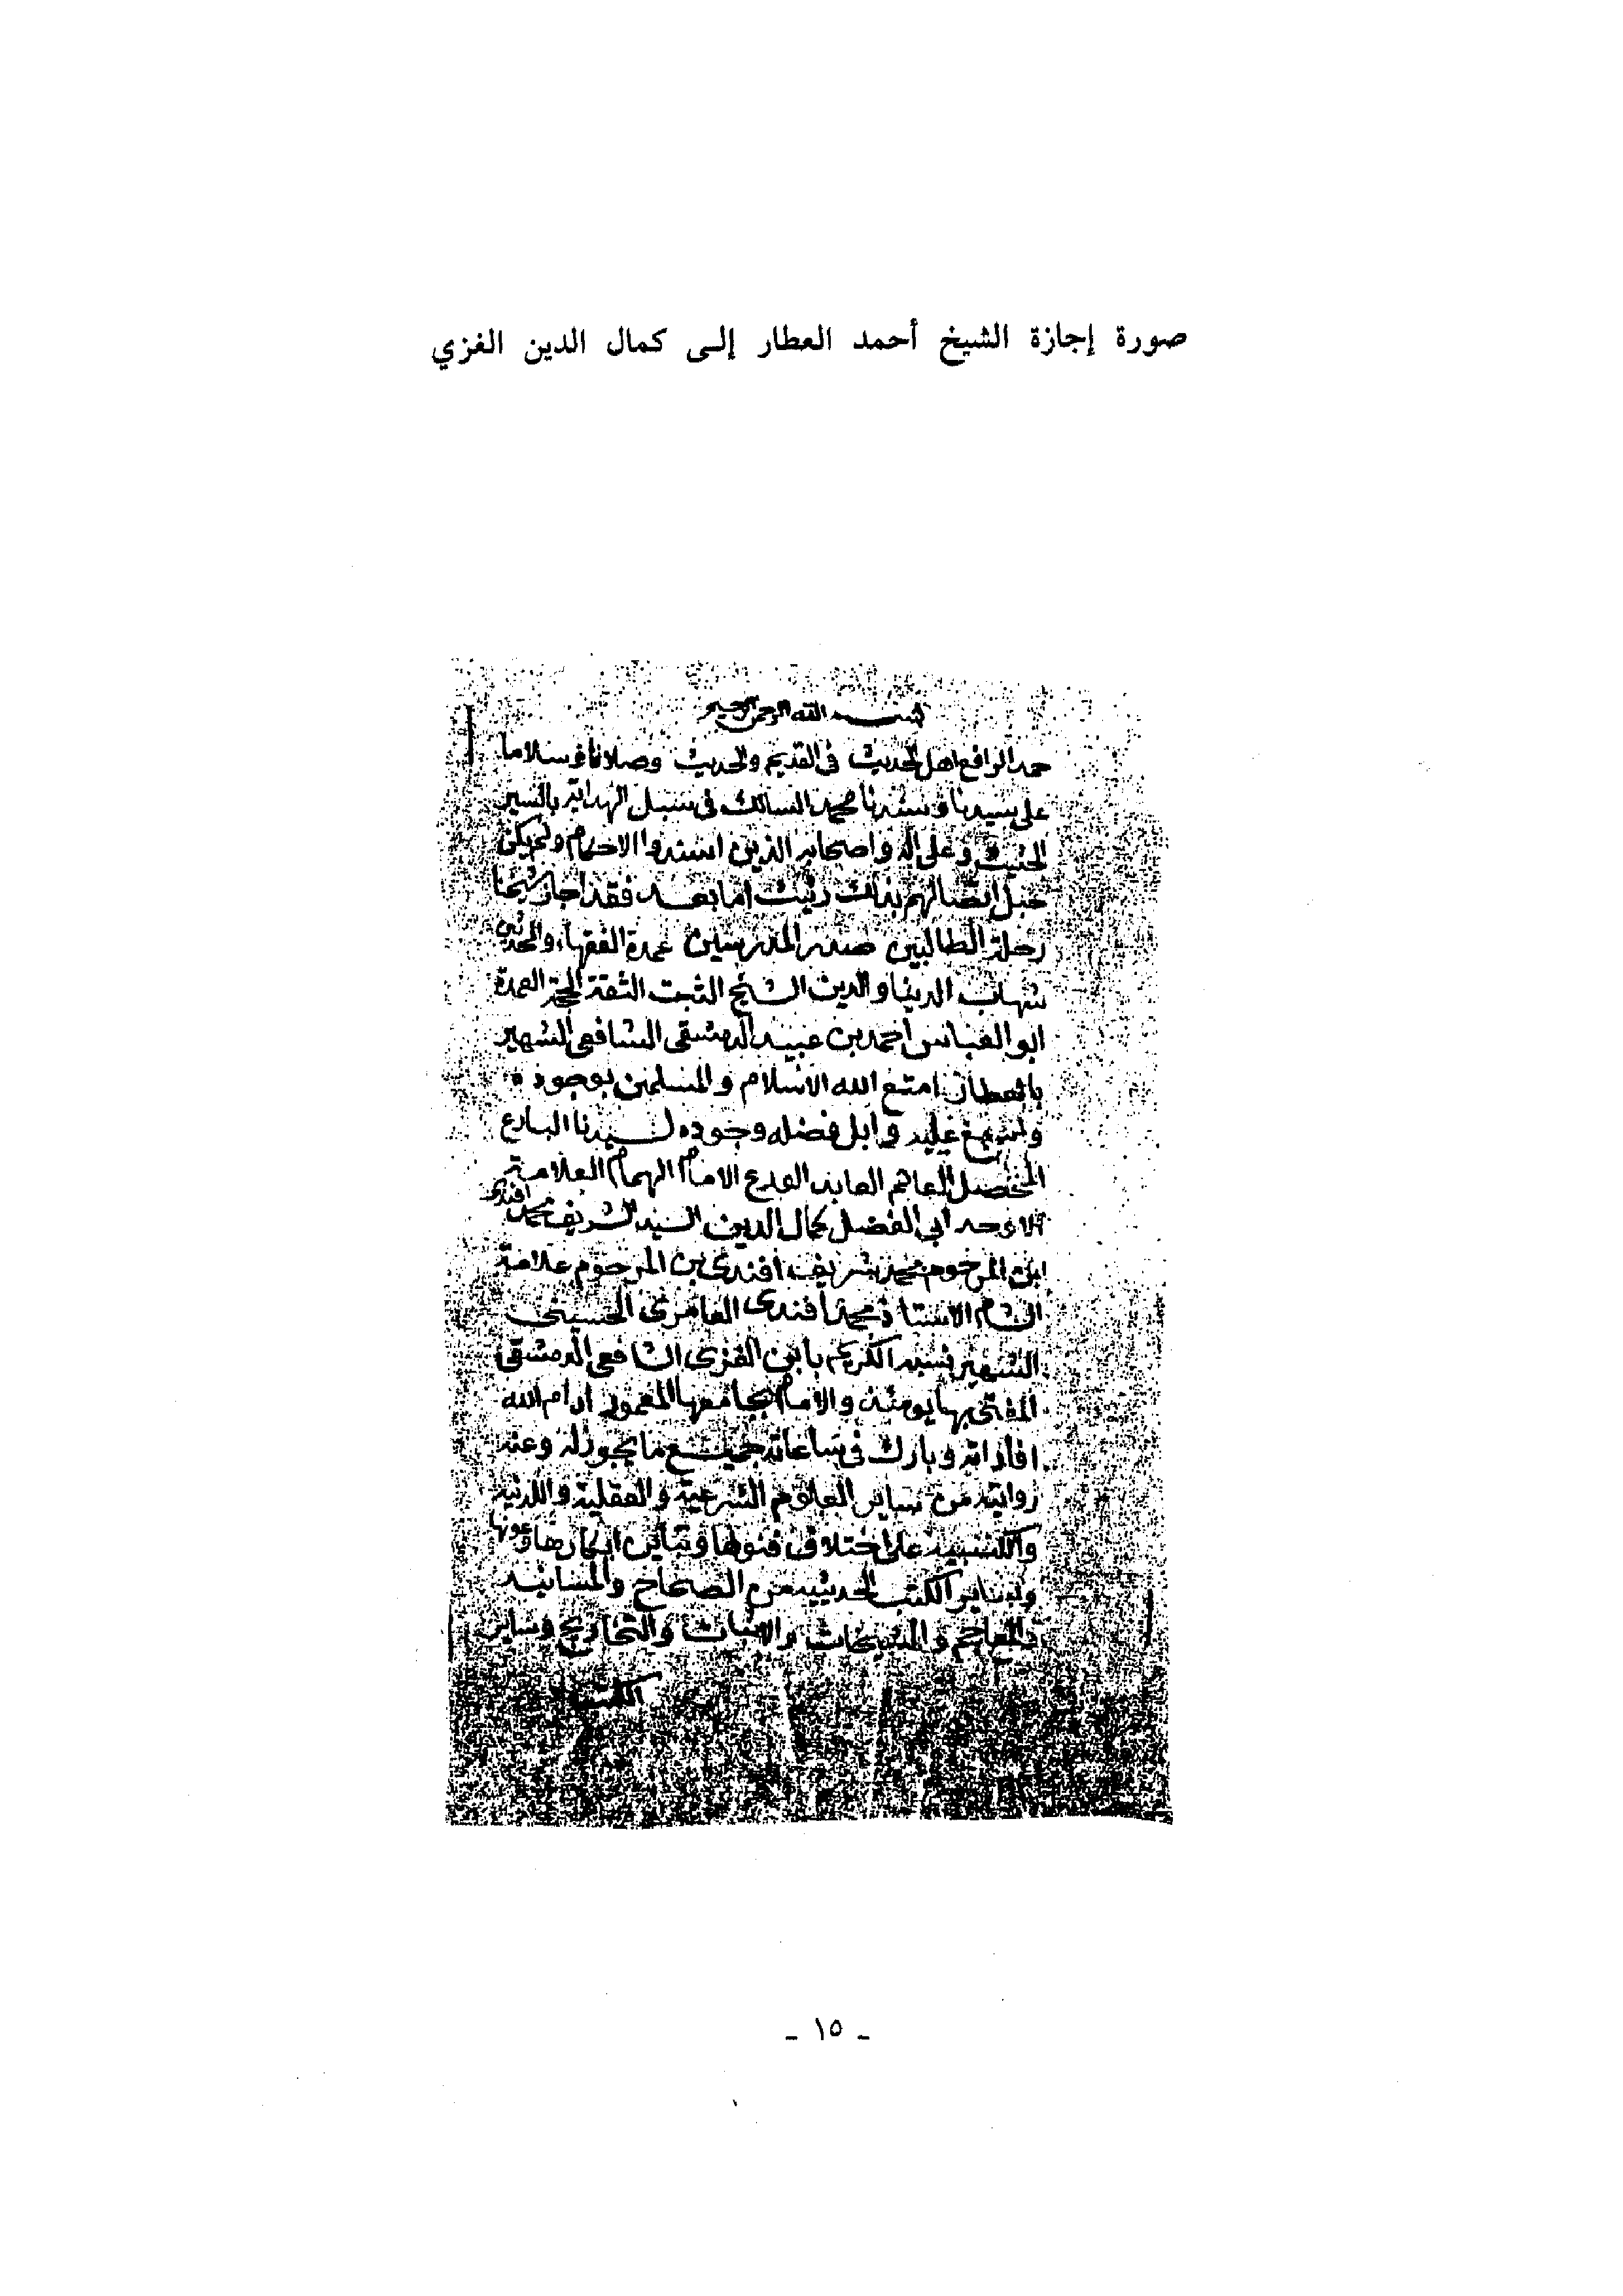 صورة إجازة الشيخ أحمد العطار إلى كمال الدين الغزي
بسم الله الرحمن الرحيم
حمدا لرافع اهل الحديث في القديم والحديث وصلاتا وسلاما
على سيدنا وسندنا محمد السالك في سبيل الهداية بالسير
الحثيث وعلى اله واصحابه الذين اسندوا الاحكام ولم يكن
حبل اتصالهم بذلك رثيث اما بعد فقد اجاز شيخنا
رحلة الطالبين صدر المدرسين عمدة الفقهاء والمحدثين
شهاب الدنيا والدين الشيخ الثبت الثقة الحجة العمدة
ابو العباس احمد بن عبيد الدمشقي الشافعي الشهير
بالعطار امتع الله الاسلام والمسلمين بوجوده
عليه وابل فضله وجوده لسيدنا البارع
المحصل العالم العابد الورع الامام الهمام العلامة
الاوحد ابي الفضل كمال الدين السيد الشريف محمد افندي
ابن المرحوم محمد شريف افندي بن المرحوم علامة
الشام الاستاذ محمد افندي العامري الحسيني
الشهير نسبه الكريم بابن الغزي الشافعي الدمشقي
المفتي بها يومئذ والامام بجامعها المعمور ادام الله
افاداته وبارك في ساعاته جميع ما يجوز له وعنه
روايته من ساير العلوم الشرعية والعقلية واللدنية
والكسبية على اختلاف فنونها وتباين ابكارها وعونها
وساير الكتب الحديثيه من الصحاح والمسانيد
والمعاجم والمشيخات والاثبات والتخاريج وساير
الكتب
- ١٥ -